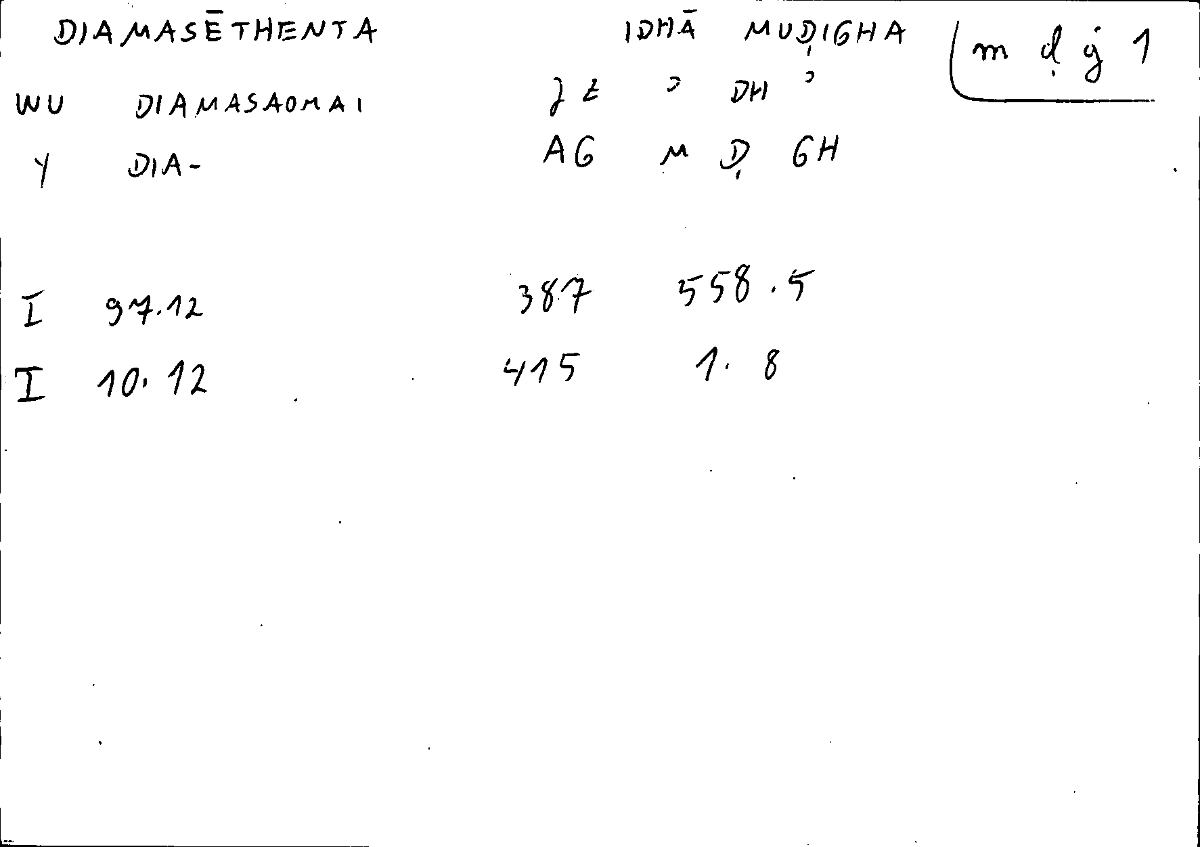 DIAMASĒTHENTA IDHĀ MUḌIGHA m ḍ ġ 1
WU DIAMASAOMAI ʾ DH ʾ
Y DIA- AG M Ḍ GH
I 97.12 387 558.5
I 10.12 415 1.8